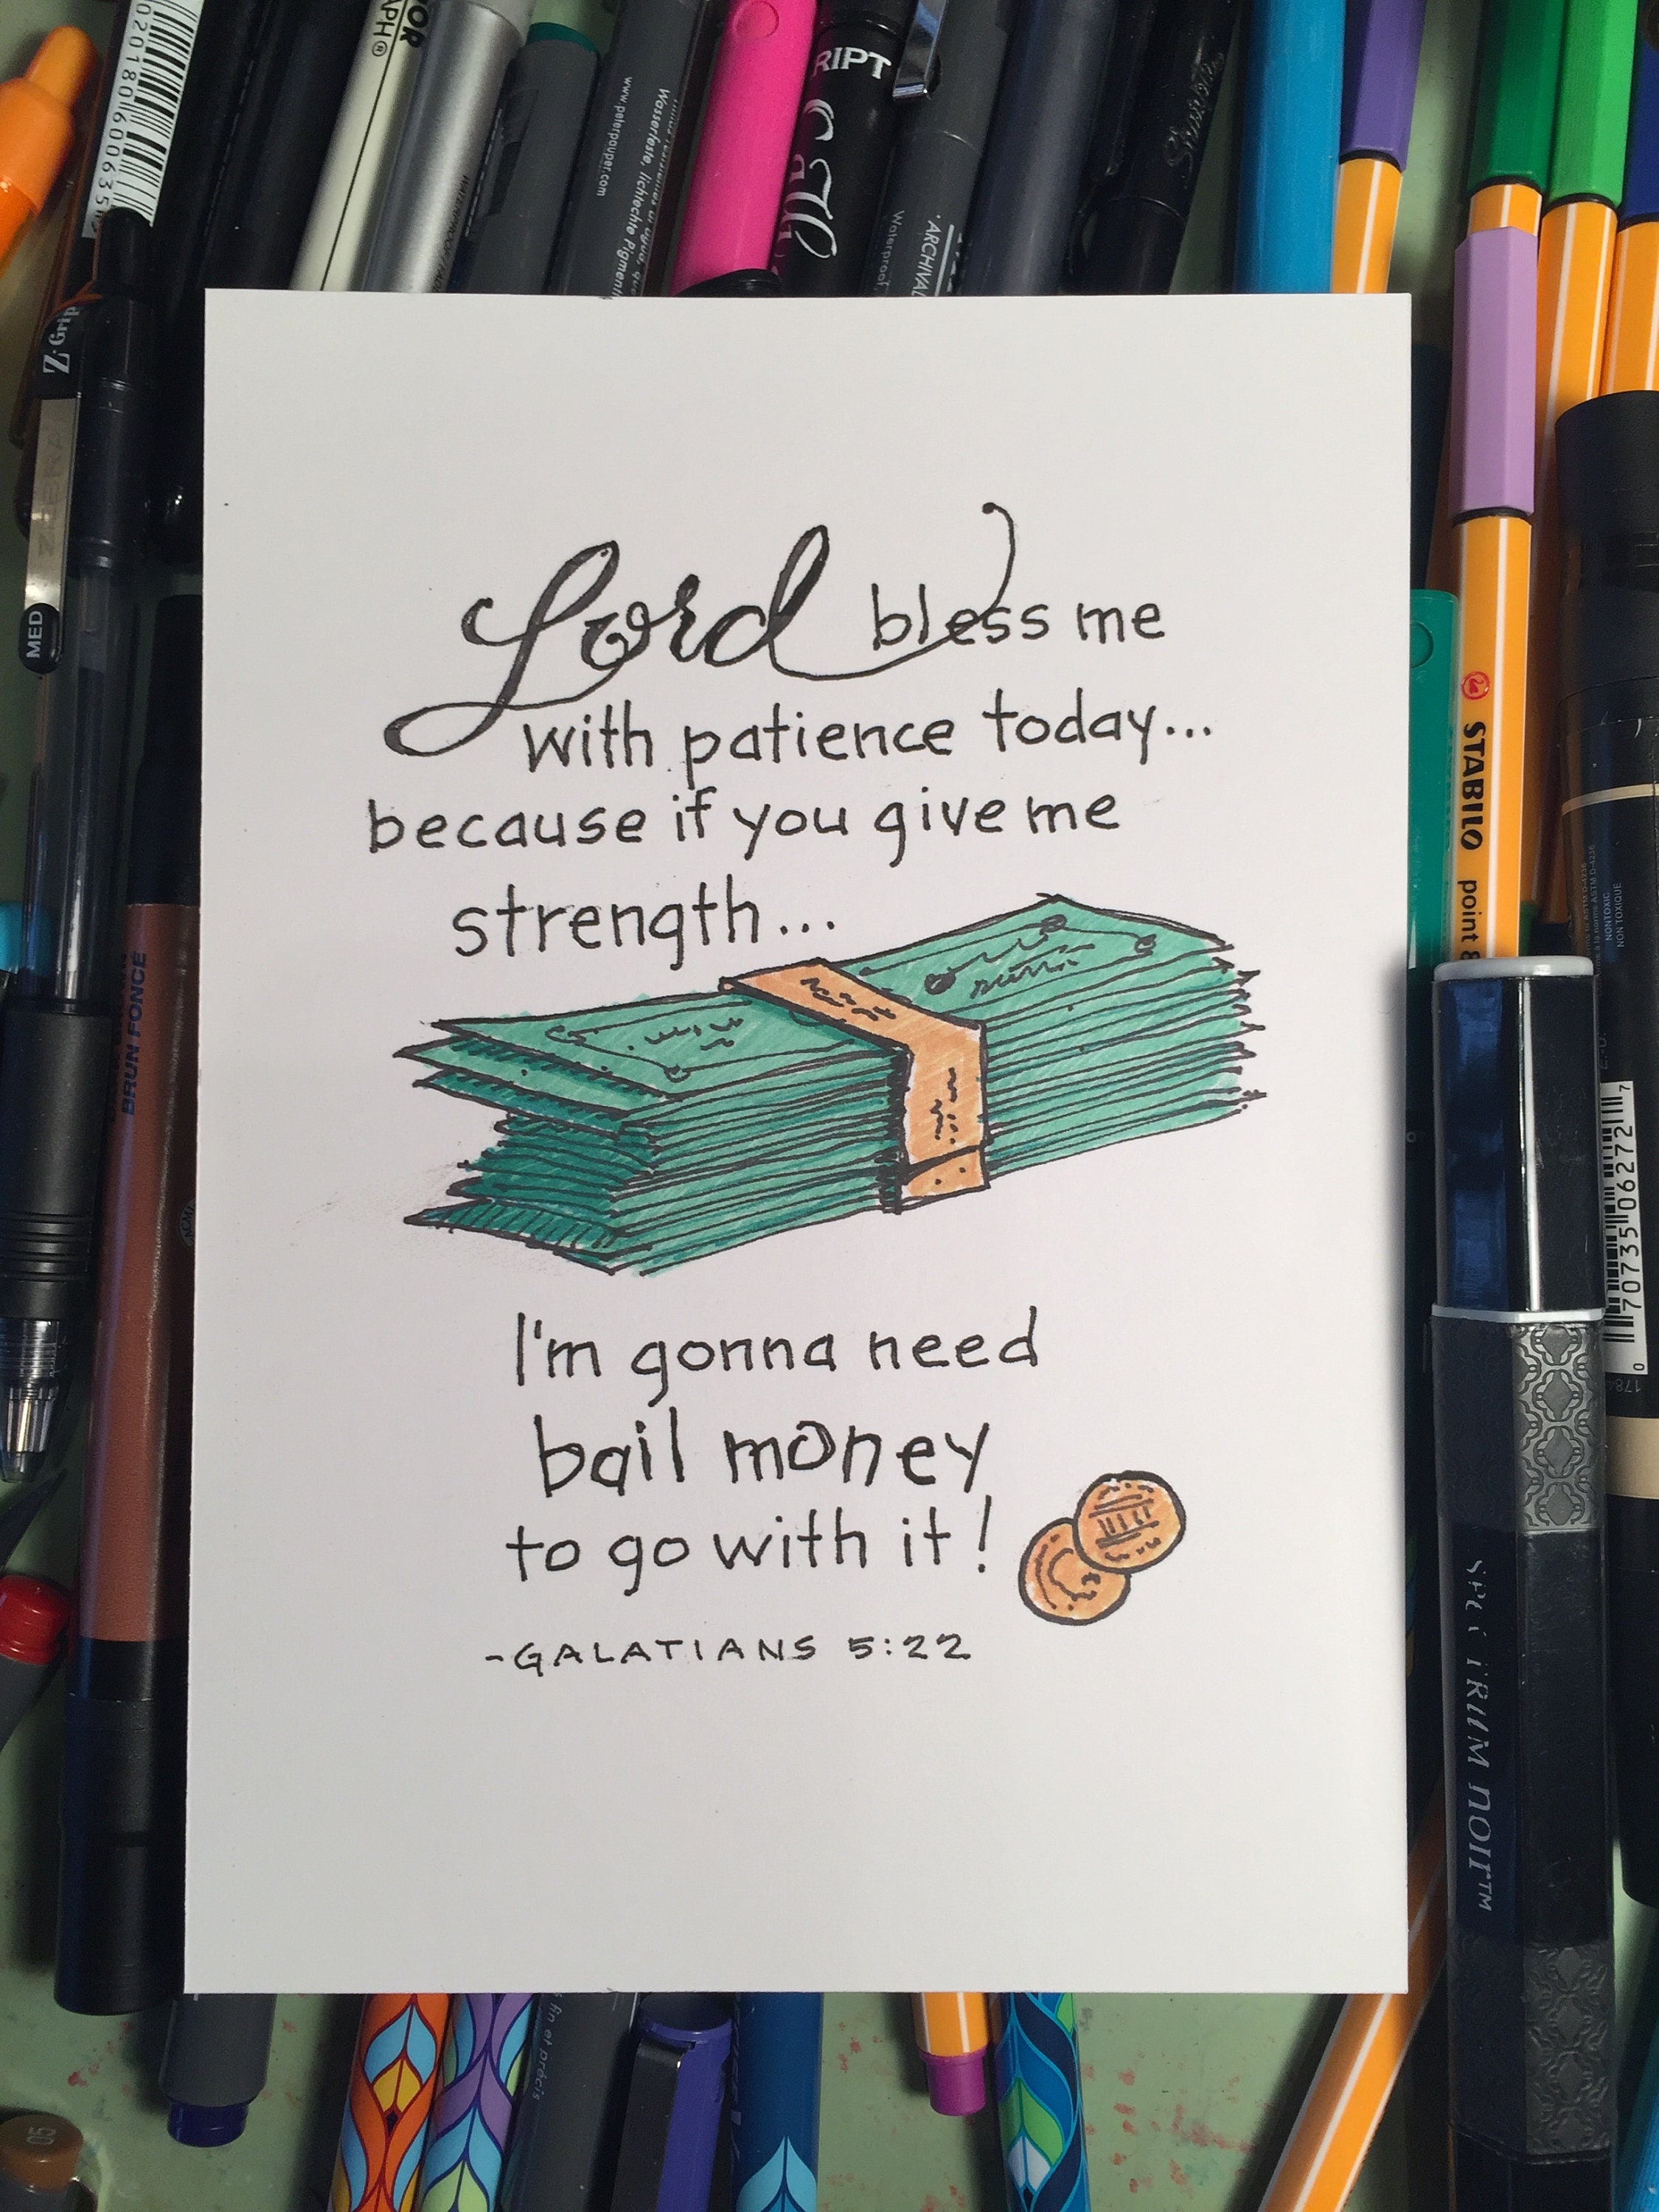 Lord bless me
with patience today...
because if you give me
strength...
I'm gonna need
bail money
to go with it!
-GALATIANS 5:22
RIPT
www.peterpauper.com
Z-Grip
MED
BRUN FONCÉ
STABILO point 8
NONTOXIC
NON TOXIQUE
SPECTRUM NOIR™
0 70735 06272 7
05